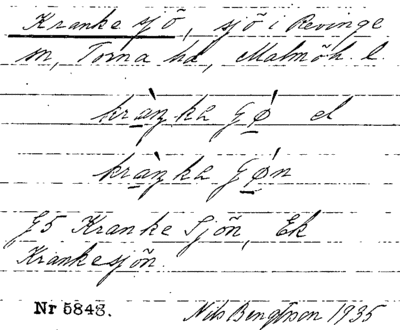 Krankesjö, sjö i Revinge
sn, Torna hd, Malmöh. l.
kràŋka ǥø̀ el
kràŋka ǥø̀n
G5 Kranke Sjön, Ek
Krankesjön.
Nr 5848.
Nils Bengtsson 1935